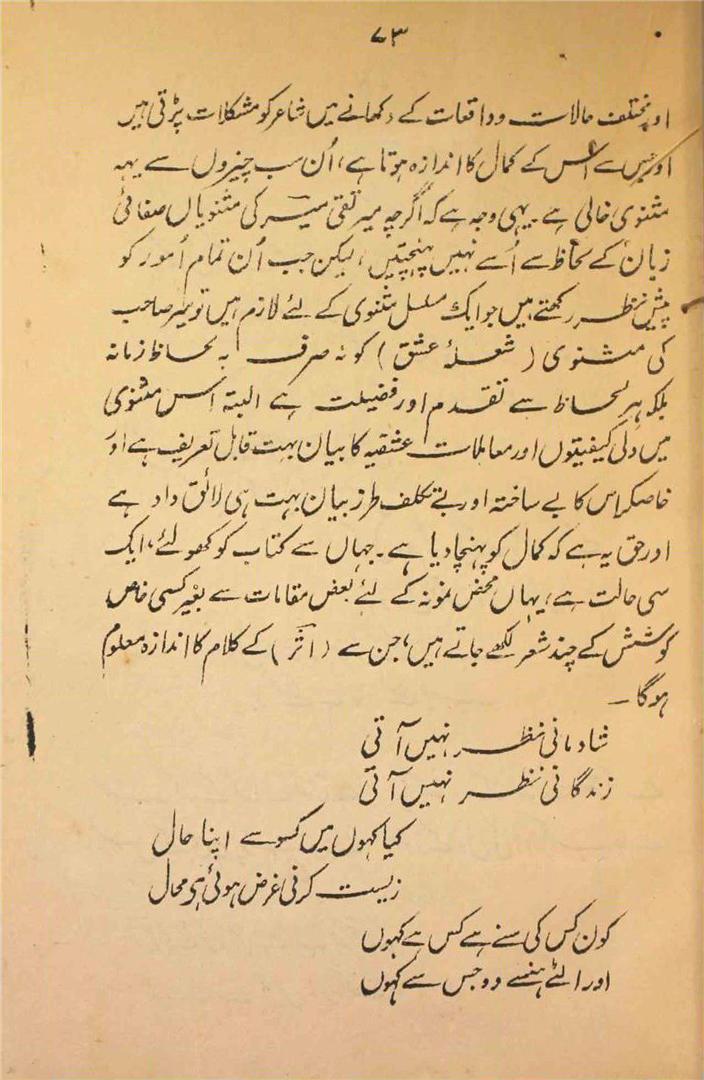 ۷۳
اور مختلف حالات و واقعات کے دکھانے میں شاعر کو مشکلات پڑتی ہیں
اور جس سے اُس کے کمال کا اندازہ ہوتا ہے، اُن سب چیزوں سے یہہ
مثنوی خالی ہے۔ یہی وجہ ہے کہ اگرچہ میر تقی میر کی مثنویاں صفائی
زبان کے لحاظ سے اُسے نہیں پہنچتیں، لیکن جب اُن تمام اُمور کو
پیش نظر رکھتے ہیں جو ایک مسلسل مثنوی کے لئے لازم ہیں تو میر صاحب
کی مثنوی (شعلۂ عشق) کو نہ صرف بہ لحاظ زمانہ
بلکہ ہر لحاظ سے تقدم اور فضیلت ہے البتہ اس مثنوی
میں دلی کیفیتوں اور معاملات عشقیہ کا بیان بہت قابل تعریف ہے اور
خاصکر اس کا بے ساختہ اور بے تکلف طرز بیان بہت ہی لائق داد ہے
اور حق یہ ہے کہ کمال کو پہنچا دیا ہے۔ جہاں سے کتاب کو کھولئے، ایک
سی حالت ہے، یہاں محض نمونہ کے لئے بعض مقامات سے بغیر کسی خاص
کوشش کے چند شعر لکھے جاتے ہیں، جن سے (اثر) کے کلام کا اندازہ معلوم
ہوگا۔
شادمانی نظر نہیں آتی
زندگانی نظر نہیں آتی
کیا کہوں میں کسو سے اپنا حال
زیست کرنی غرض ہوئی ہی محال
کون کس کی سنے ہے کس سے کہوں
اور الٹے ہنسے وو جس سے کہوں